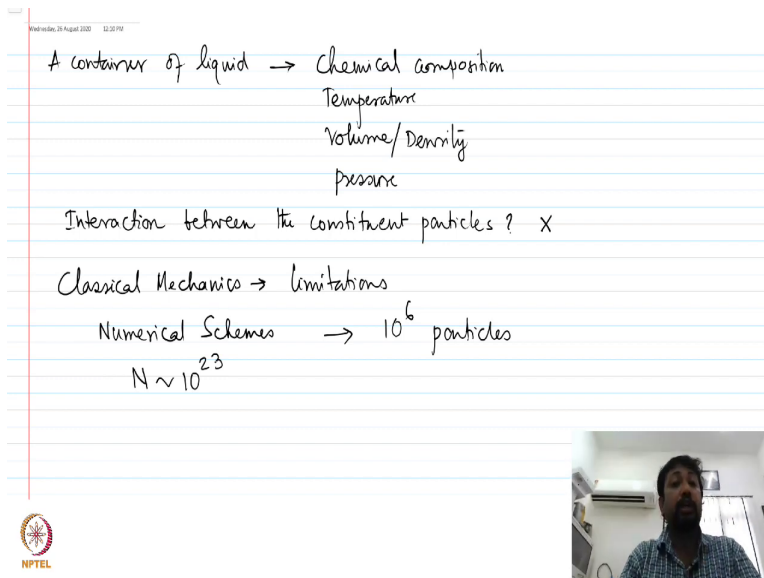 Wednesday, 26 August 2020 12:10 PM
A container of liquid → Chemical composition
Temperature
Volume/Density
pressure
Interaction between the constituent particles? X
Classical Mechanics → limitations
Numerical Schemes → 10⁶ particles
N ~ 10²³
NPTEL